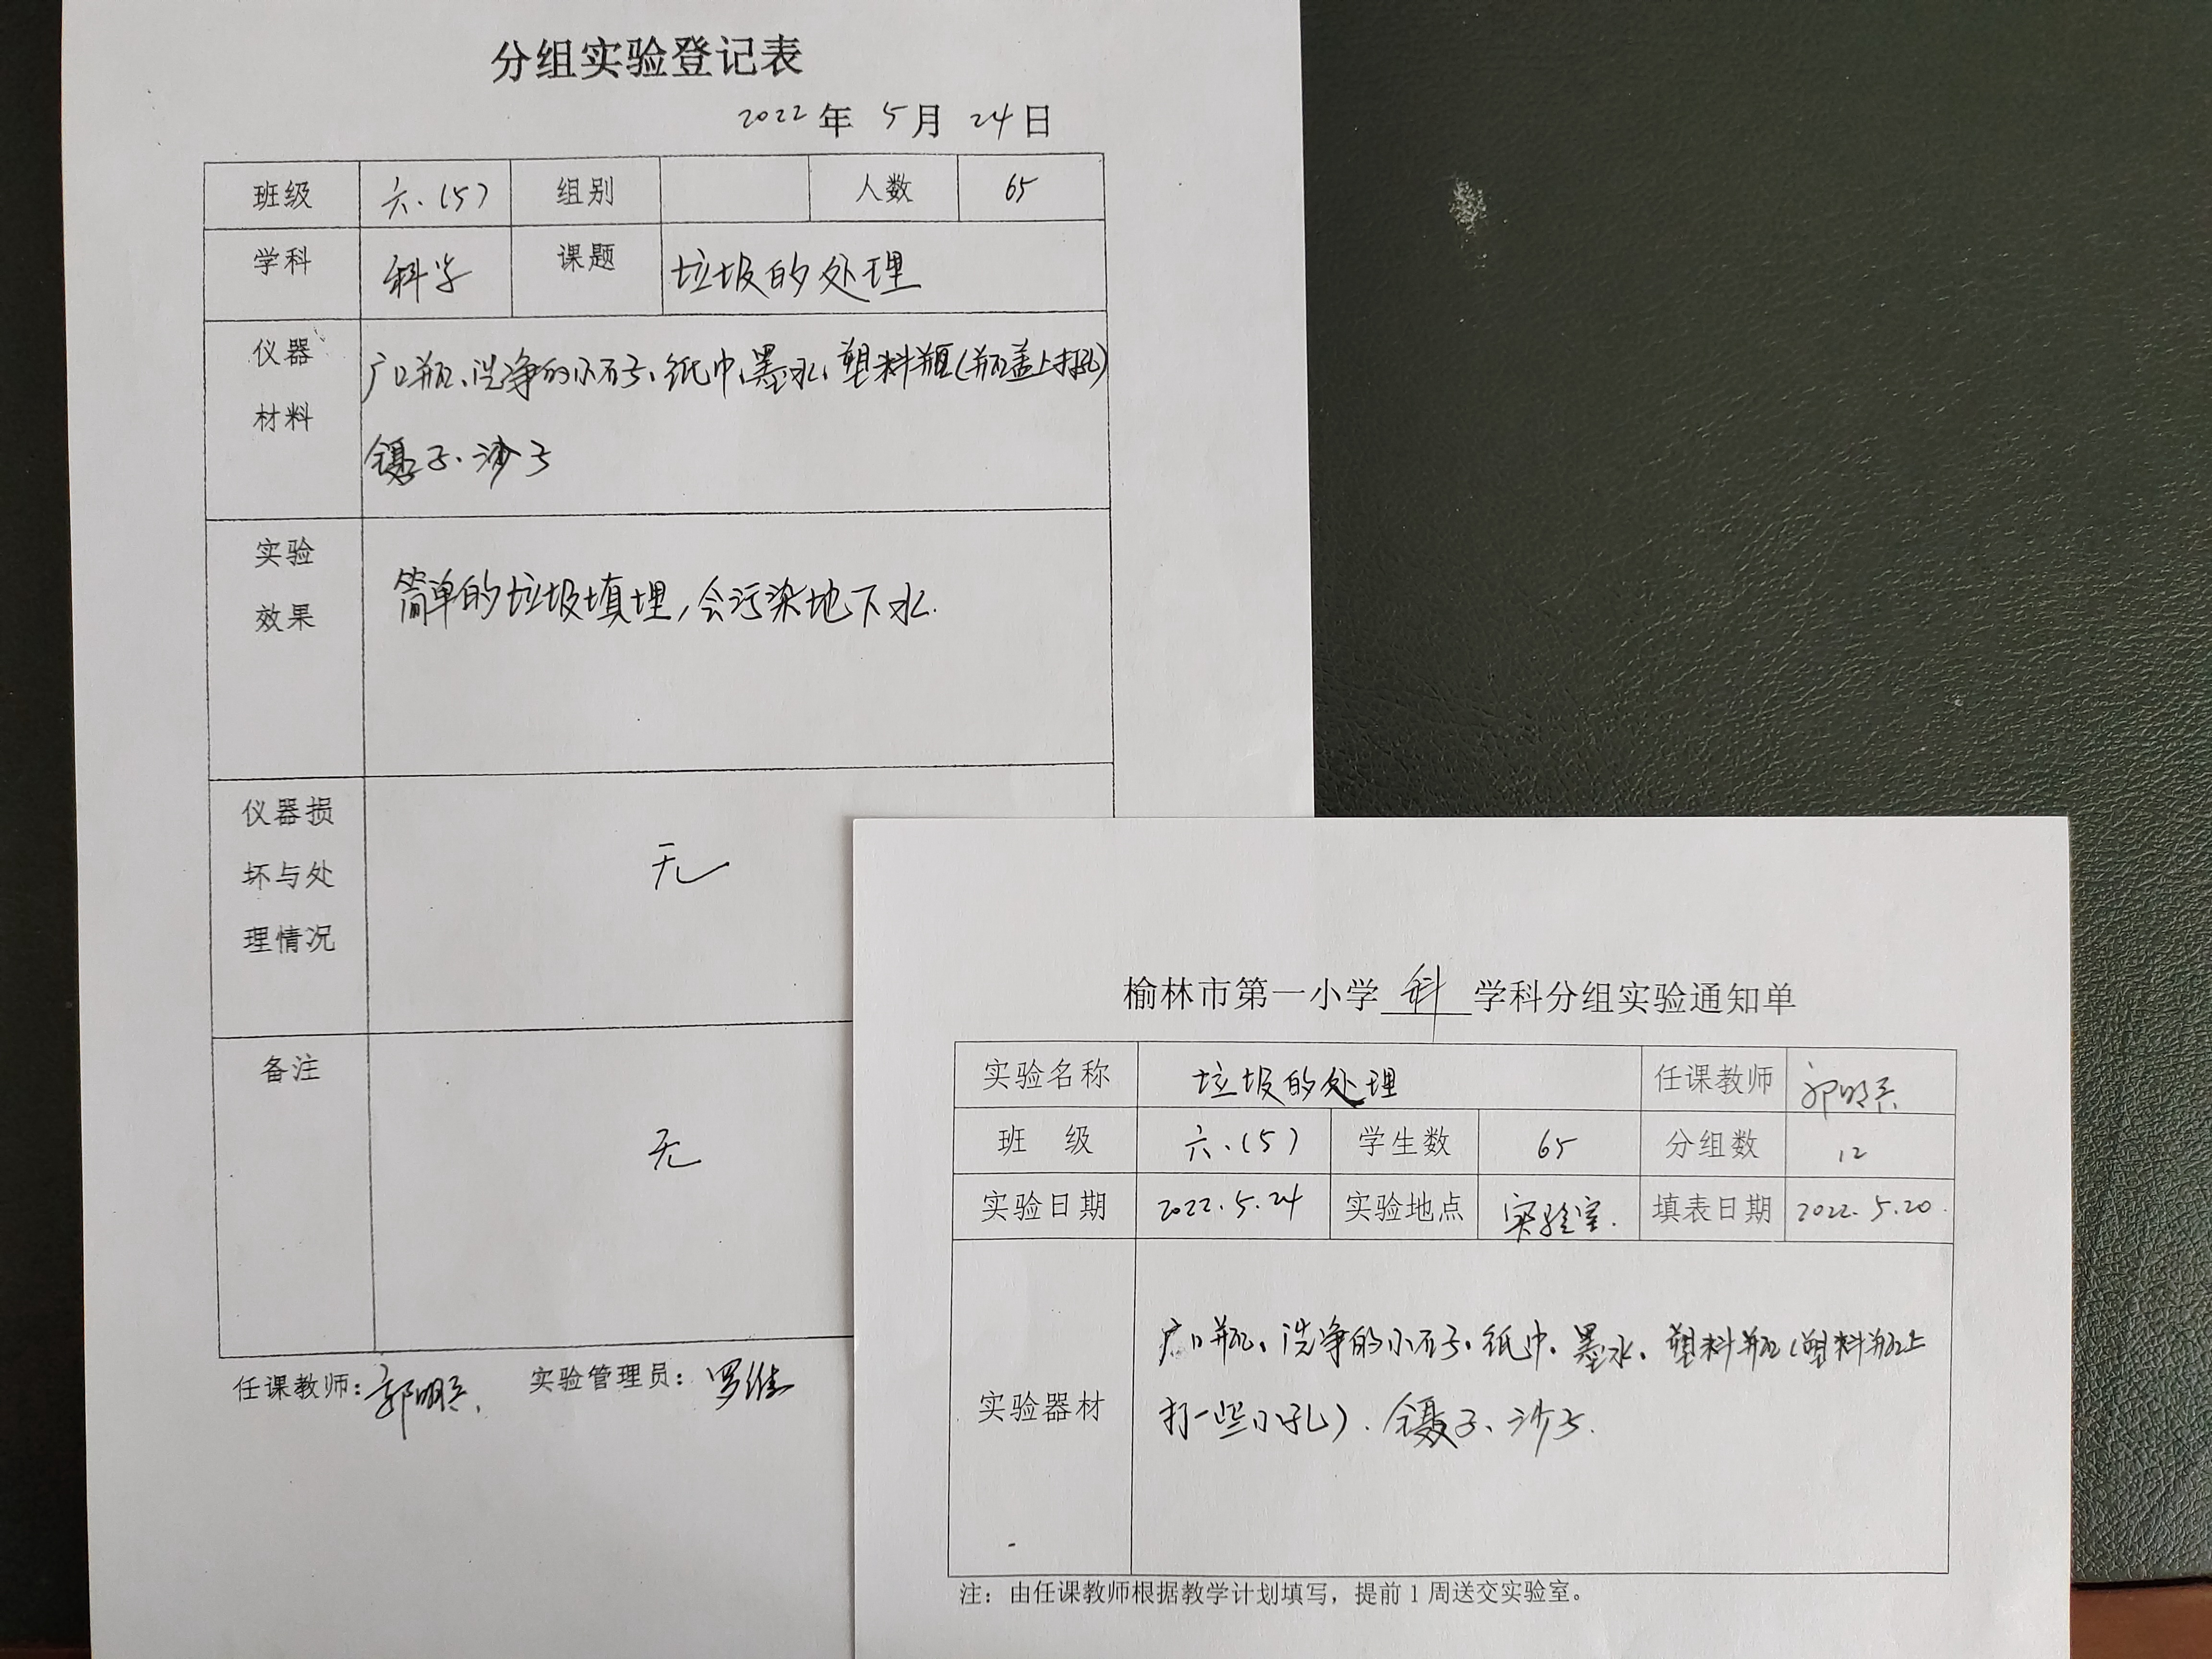 分组实验登记表
2022年 5月 24日
班级 六.(5) 组别 人数 65
学科 科学 课题 垃圾的处理
仪器
材料
广口瓶、洗净的小石子、纸巾、墨水、塑料瓶(瓶盖上打孔)
镊子、沙子
实验
效果
简单的垃圾填埋,会污染地下水.
仪器损
坏与处
理情况
无
备注
无
任课教师: 实验管理员:
榆林市第一小学 科 学科分组实验通知单
实验名称 垃圾的处理 任课教师
班 级 六.(5) 学生数 65 分组数 12
实验日期 2022.5.24 实验地点 实验室. 填表日期 2022.5.20.
实验器材
广口瓶、洗净的小石子、纸巾、墨水、塑料瓶(塑料瓶上
打一些小孔)、镊子、沙子.
注：由任课教师根据教学计划填写，提前1周送交实验室。